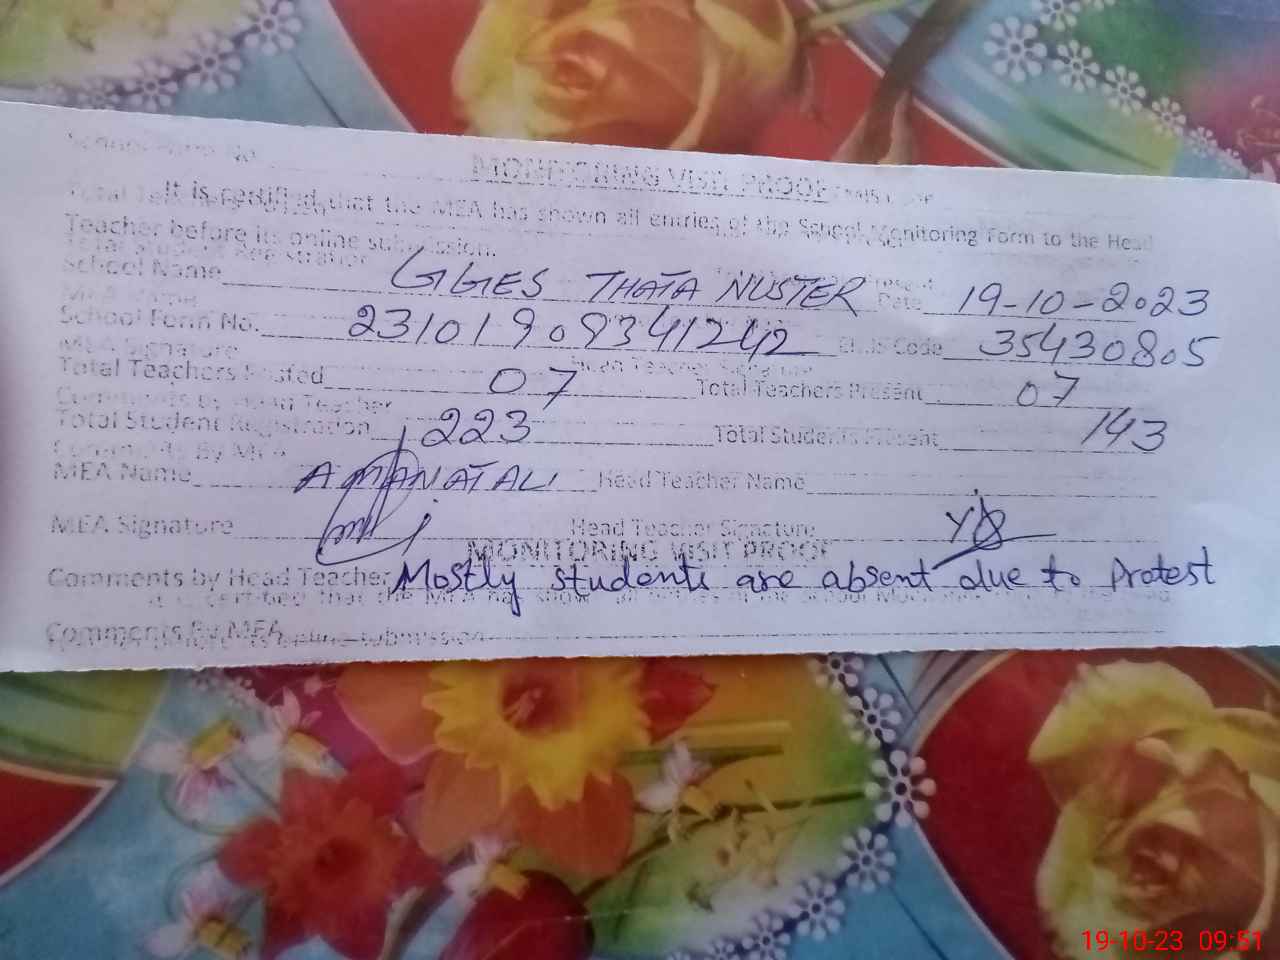 MONITORING VISIT PROOF
It is certified that the MEA has shown all entries of the School Monitoring Form to the Head
Teacher before its online submission.
School Name GGES THATA NUSTER Date 19-10-2023
School Form No. 23101909341242 EMIS Code 35430805
Total Teachers Posted 07 Total Teachers Present 07
Total Student Registration 223 Total Students Present 143
MEA Name AMANAT ALI Head Teacher Name
MEA Signature Head Teacher Signature
MONITORING VISIT PROOF
Comments by Head Teacher Mostly students are absent due to Protest
Comments By MEA
19-10-23 09:51